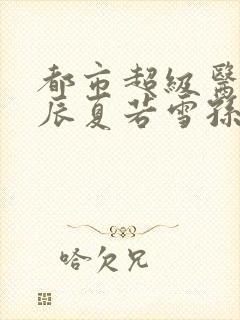 都市超级医
辰夏若雪孫
哈欠兄